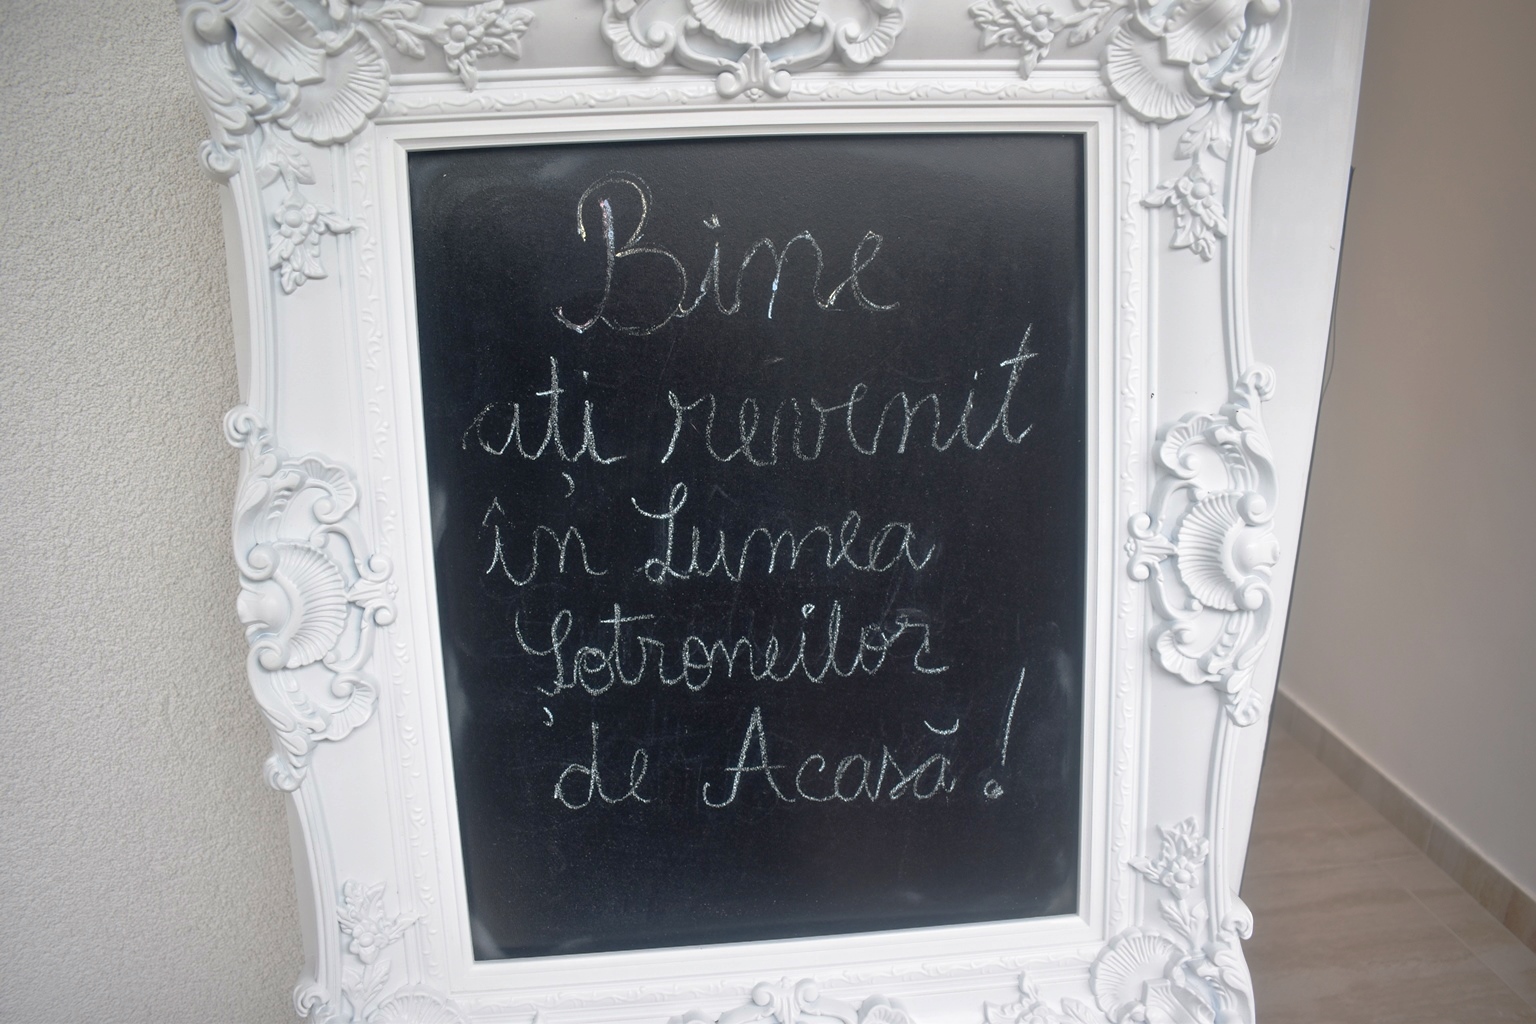 Bine
ați revenit
în Lumea
Șotroneilor
de Acasă!